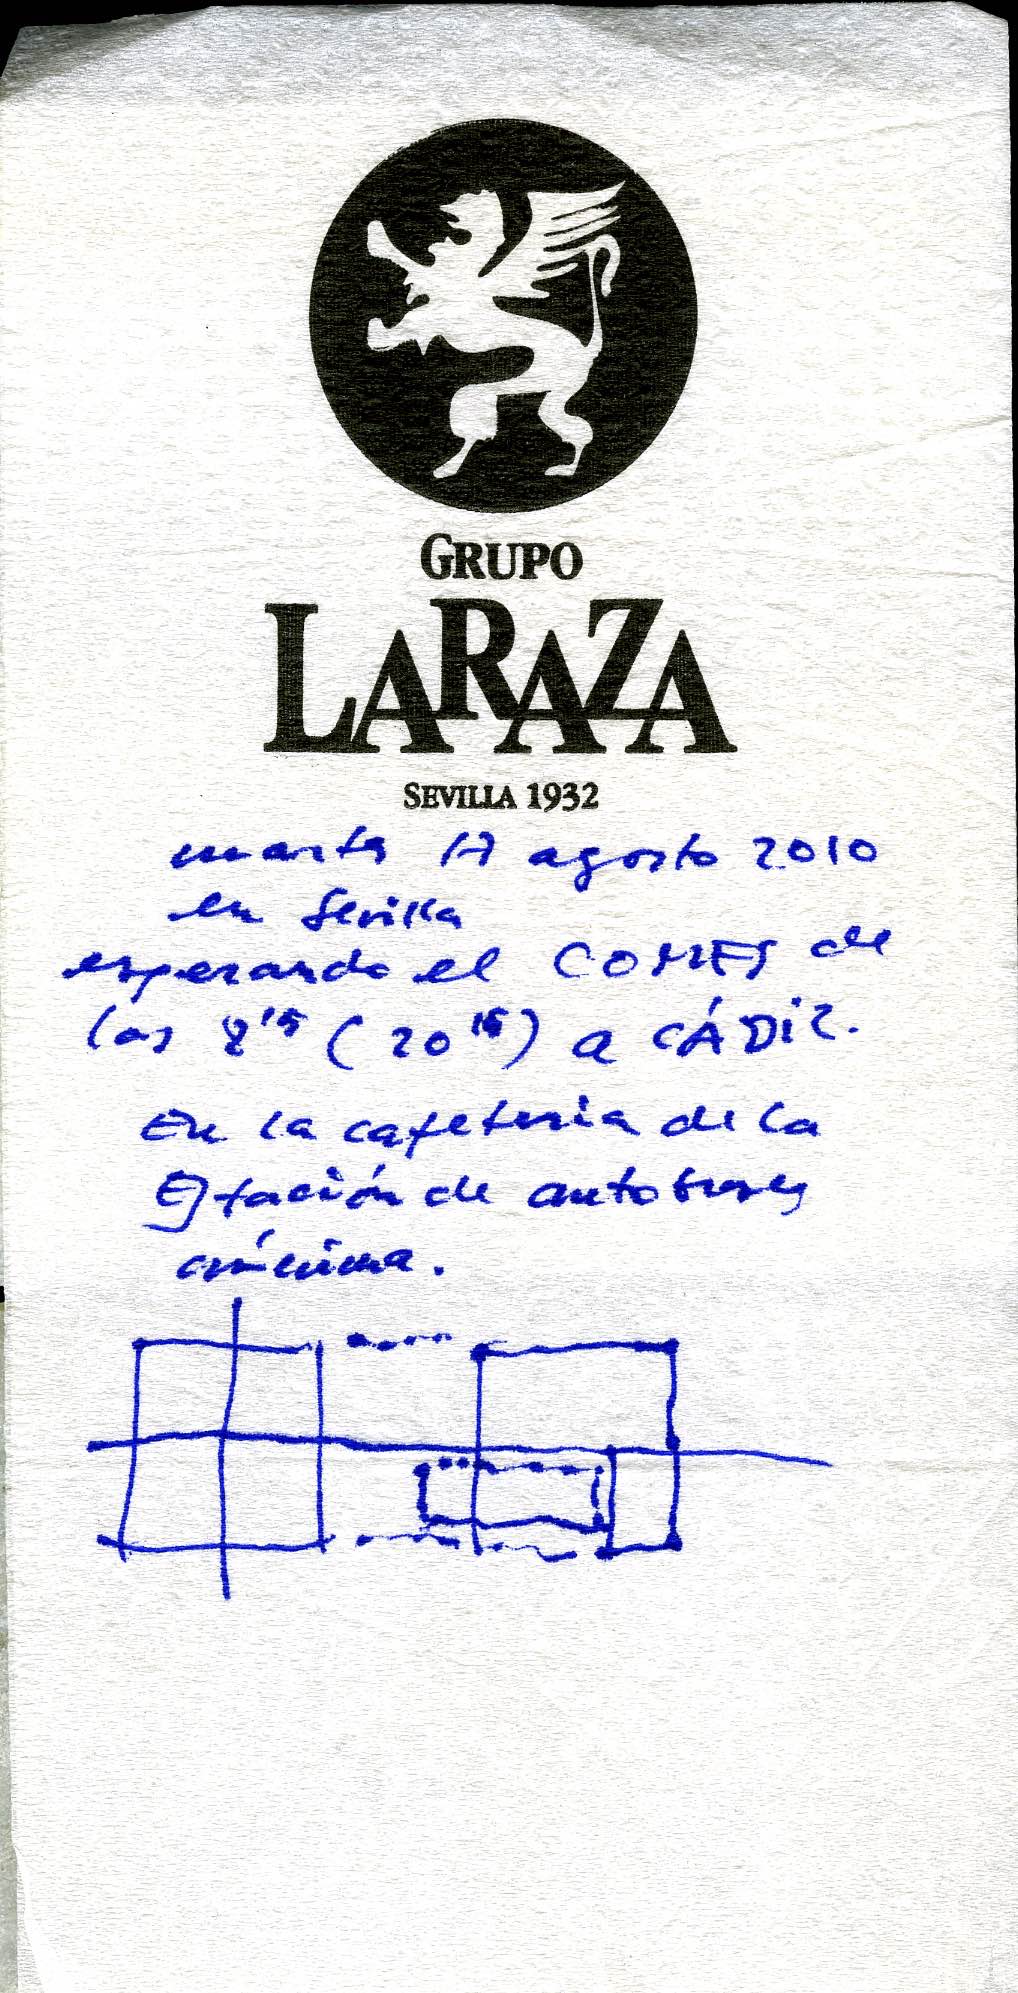 GRUPO
LARAZA
SEVILLA 1932
martes 17 agosto 2010
en Sevilla
esperando el COMES de
las 8'15 (20'15) a CÁDIZ.
En la cafetería de la
Estación de autobuses